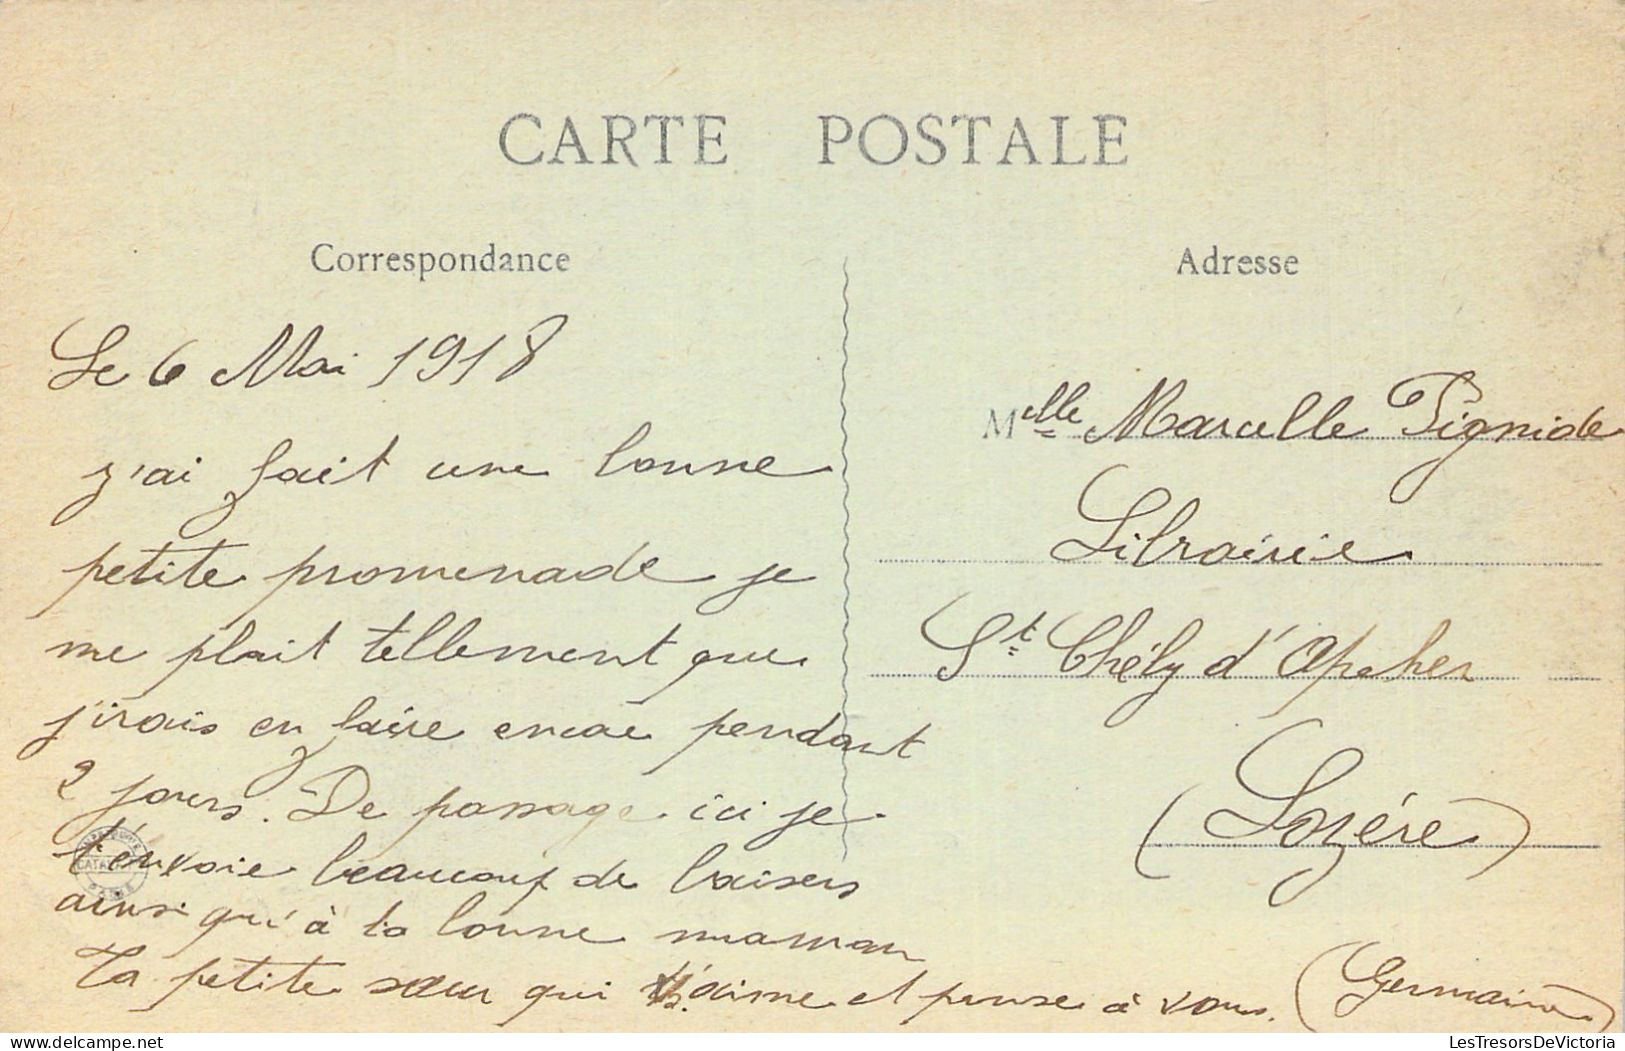 CARTE POSTALE
Correspondance
Le 6 Mai 1918
j'ai fait une bonne
petite promenade je
me plait tellement que
j'irais en faire encore pendant
2 jours. De passage ici je
t'envoie beaucoup de baisers
ainsi qu'à ta bonne maman
Ta petite sœur qui t'aime et pense à vous. (Germaine)
Adresse
Melle Marcelle Pignide
Librairie
St Chély d'Apcher
(Lozère)
LesTresorsDeVictoria